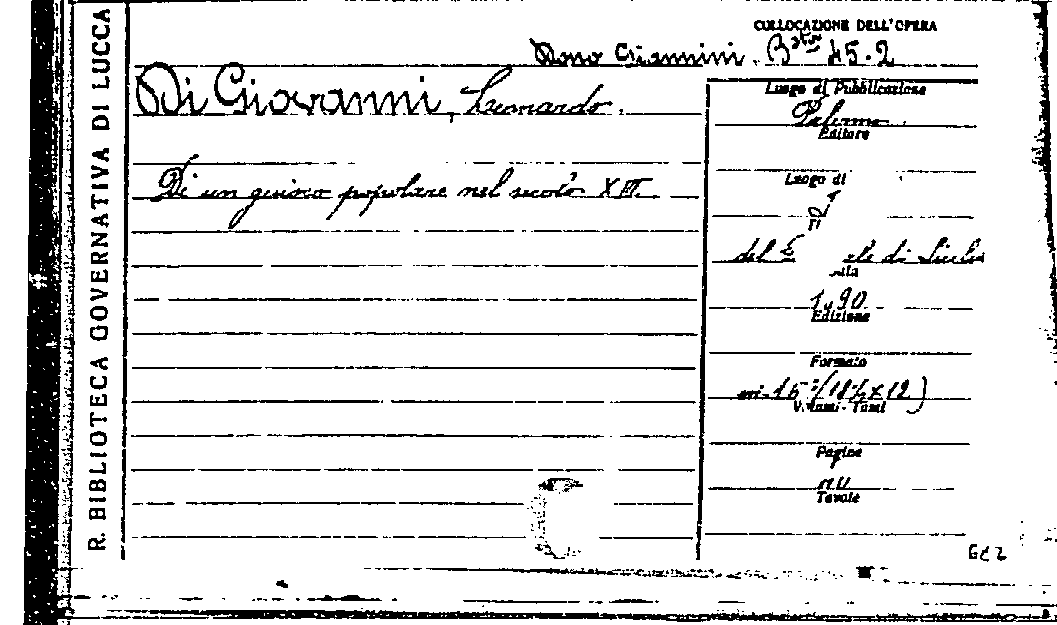 R. BIBLIOTECA GOVERNATIVA DI LUCCA
COLLOCAZIONE DELL'OPERA
Dono Giannini. Bta 45.2
Di Giovanni, Leonardo.
Di un giuoco popolare nel secolo XIII.
Luogo di Pubblicazione
Palermo
Editore
Luogo di
del di Sicilia
1890
Edizione
Formato
in-16º (18½ x 12)
Volumi - Tomi
Pagine
Tavole